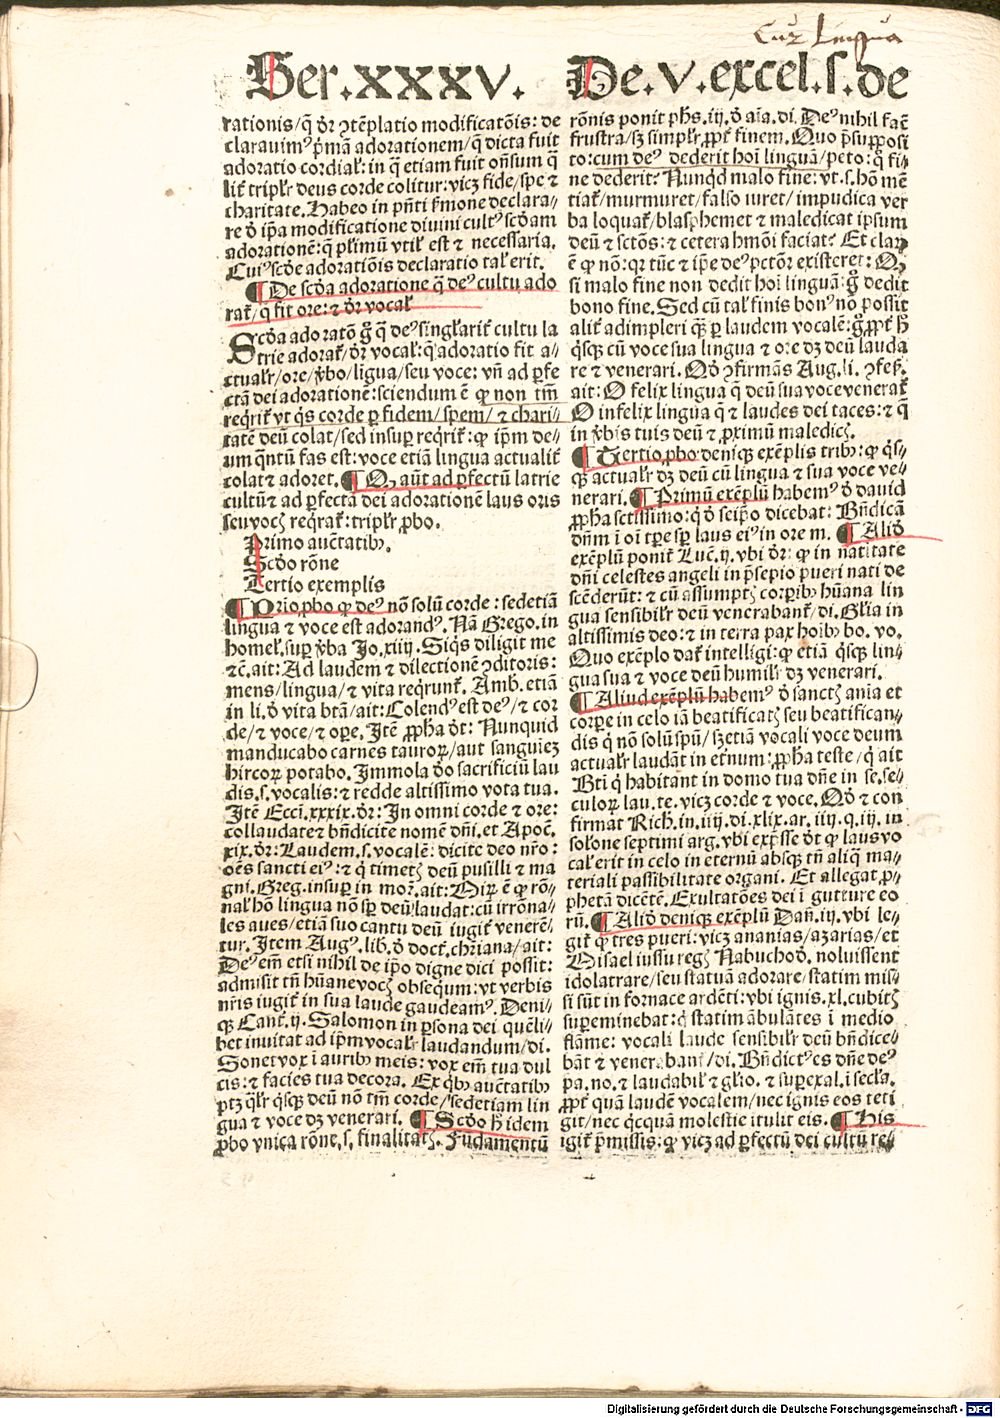 Cur Lingua
Ser. XXXV.
De. V. excel. s. de
rationis/q̃ dr̃ ↄtẽplatio modificatõis: de
clarauimꝰ pͥmã adorationem/q̃ dicta fuit
adoratio cordial': in q̃ etiam fuit oñsum q̃
lit̃ tripl'r deus corde colitur: vicꝫ fide/spe ⁊
charitate. Habeo in pñti sͥmone declara-
re ð ip̃a modificatione diuini cultꝰ scðam
adorationẽ: q̃ pl'imũ vtil' est ⁊ necessaria.
Cuiꝰ scðe adoratiõis declaratio tal' erit.
¶ De scða adoratione q̃ deꝰ cultu ado
rat̃/q̃ fit ore: ⁊ dr̃ vocal'
Scða adoratõ g̃ q̃ deꝰ singl'arit̃ cultu la
trie adorat̃/dr̃ vocal': q̃ adoratio fit a⸗
ctual'r/ore/v̾bo/lĩgua/seu voce: vñ ad ꝑfe
ctã dei adorationẽ: sciendum ẽ ꝙ non tm̃
reqͥrit̃ vt qͥs corde ꝑ fidem/spem/⁊ chari⸗
tatẽ deũ colat/sed insuꝑ reqͥrit̃: ꝙ ip̃m de⸗
um qͣntũ fas est: voce etiã lingua actualit̃
colat ⁊ adoret. ¶ Qꝫ aũt ad ꝑfectũ latrie
cultũ ⁊ ad ꝑfectã dei adorationẽ laus oris
seu vocꝭ reqͥrat̃: tripl'r ꝓbo.
Primo auctatibꝫ.
Scðo rõne
Tertio exemplis
¶ Prio ꝓbo ꝙ deꝰ nõ solũ corde: sed etiã
lingua ⁊ voce est adorandꝰ. Nã Grego. in
homel'. suꝑ v̾ba Jo. xiiij. Siqͥs diligit me
⁊c̃. ait: Ad laudem ⁊ dilectionẽ ↄditoris:
mens/lingua/⁊ vita reqͥrunt̃. Amb. etiã
in li. ð vita btã/ait: Colendꝰ est deꝰ/⁊ cor
de/⁊ voce/⁊ oꝑe. Jtẽ ꝓpħa ðt: Nunquid
manducabo carnes tauroꝝ/aut sanguiez
hircoꝝ potabo. Jmmola ðo sacrificiũ lau
dis. s. vocalis: ⁊ redde altissimo vota tua.
Jtẽ Ecci. xxxix. dr̃: Jn omni corde ⁊ ore:
collaudate⁊ bñdicite nomẽ dñi. et Apoc̃.
xix. dr̃: Laudem. s. vocalẽ: dicite deo nr̃o:
oẽs sancti eiꝰ: ⁊ q̃ timetꝭ deũ pusilli ⁊ ma
gni. Greg. insuꝑ in mor̃. ait: Miꝝ ẽ ꝙ rõ⸗
nal' hõ lingua nõ sꝑ deũ laudat: cũ irrõna⸗
les aues/etiã suo cantu deũ iugit̃ venerẽ⸗
tur. Jtem Augꝰ. lib. ð doct̃. chr̃iana/ait:
Deꝰ em̃ etsi nihil de ip̃o digne dici possit:
admisit tñ hũane vocꝭ obseqͥum: vt verbis
nr̃is iugit̃ in sua laude gaudeamꝰ. Deni⸗
qꝫ Cant̃. ij. Salomon in ꝑsona dei quẽli⸗
bet inuitat ad ip̃m vocal'r laudandum/di.
Sonet vox ĩ auribꝫ meis: vox em̃ tua dul
cis: ⁊ facies tua decora. Ex qͥbꝫ auctatibꝫ
ptꝫ qͣl'r qͥsqꝫ deũ nõ tm̃ corde/sed etiam lin
gua ⁊ voce dꝫ venerari. ¶ Scðo ħ idem
ꝓbo vnica rõne. s. finalitatꝭ. Fũdamentũ
rõnis ponit pħs. iij. ð aĩa. di. Deꝰ nihil fac̃
frustra/sꝫ simpl'r ꝓpt̃ finem. Quo p̃supposi
to: cum deꝰ dederit hoĩ linguã/peto: q̃ fi⸗
ne dederit? Nunqͥd malo fine: vt. s. hõ mẽ
tiat̃/murmuret/falso iuret/impudica ver
ba loquat̃/blasphemet ⁊ maledicat ipsum
deũ ⁊ sctõs: ⁊ cetera hmõi faciat? Et clarꝫ
ẽ ꝙ nõ: qꝛ tũc ⁊ ip̃e deꝰ pctõꝝ existeret: Qꝫ
si malo fine non dedit hoĩ linguã: g̃ dedit
bono fine. Sed cũ tal' finis bonꝰ nõ possit
alit̃ adimpleri qͣꝫ ꝑ laudem vocalẽ: g̃ ꝓpt̃ ħ
qͥsqꝫ cũ voce sua lingua ⁊ ore dꝫ deũ lauda
re ⁊ venerari. Qð ↄfirmãs Aug. li. ↄfes̃.
ait: O felix lingua q̃ deũ sua voce venerat̃
O infelix lingua q̃ ⁊ laudes dei taces: ⁊ q̃
in v̾bis tuis deũ ⁊ ꝓximũ maledicꝭ.
¶ Tertio ꝓbo deniqꝫ exẽplis tribꝰ: ꝙ qͥs⸗
qꝫ actual'r dꝫ deũ cũ lingua ⁊ sua voce ve⸗
nerari. ¶ Primũ exẽplũ habemꝰ ð dauid
ꝓpħa sctissimo: qͥ ð seip̃o dicebat: Bñdicã
dñm ĩ oĩ tꝑe sꝑ laus eiꝰ in ore m. ¶ Aliõ
exẽplũ ponit̃ Luc̃. ij. vbi dr̃: ꝙ in natitate
dñi celestes angeli in p̃sepio pueri nati de
scẽderũt: ⁊ cũ assumptꝭ corꝑibꝫ hũana lin
gua sensibil'r deũ venerabant̃/di. Gl'ia in
altissimis deo: ⁊ in terra pax hoĩbꝫ bo. vo.
Quo exẽplo dat̃ intelligi: ꝙ etiã qͥsqꝫ lin⸗
gua sua ⁊ voce deũ humil'r dꝫ venerari.
¶ Aliud exẽplũ habemꝰ ð sanctꝭ anĩa et
corꝑe in celo iã beatificatꝭ seu beatifican⸗
dis qͥ nõ solũ spũ/sꝫ etiã vocali voce deum
actual'r laudãt in et̾num: ꝓpħa teste/qͥ ait
Bti qͥ habitant in domo tua dñe in se. se⸗
culoꝝ lau. te. vicꝫ corde ⁊ voce. Qð ⁊ con
firmat Rich. in. iiij. di. xlix. ar. iiij. q. iij. in
solõne septimi arg. vbi exp̃sse ðt ꝙ laus vo
cal' erit in celo in eternũ absqꝫ tñ aliq̃ ma⸗
teriali passibilitate organi. Et allegat ꝓ⸗
phetã dicẽtẽ. Exultatões dei ĩ gutture eo
rũ. ¶ Aliõ deniqꝫ exẽplũ Dañ. iij. vbi le⸗
git̃ ꝙ tres pueri: vicꝫ ananias/azarias/et
Misael iussu regꝭ Nabuchoð. noluissent
idolatrare/seu statuã adorare/statim mis⸗
si sũt in fornace ardẽti: vbi ignis. xl. cubitꝭ
suꝑeminebat: qͥ statim ãbulãtes ĩ medio
flãme: vocali laude sensibil'r deũ bñdice⸗
bãt ⁊ venerabant/di. Bñdictꝰ es dñe deꝰ
pa. no. ⁊ laudabil' ⁊ gl'io. ⁊ suꝑexal. ĩ secl'a.
ꝓpt̃ quã laudẽ vocalem/nec ignis eos teti
git/nec qͥcqͣꝫ molestie ĩtulit eis. ¶ His
igit̃ p̃missis: ꝙ vicꝫ ad ꝑfectũ dei cultũ re⸗
Digitalisierung gefördert durch die Deutsche Forschungsgemeinschaft - DFG